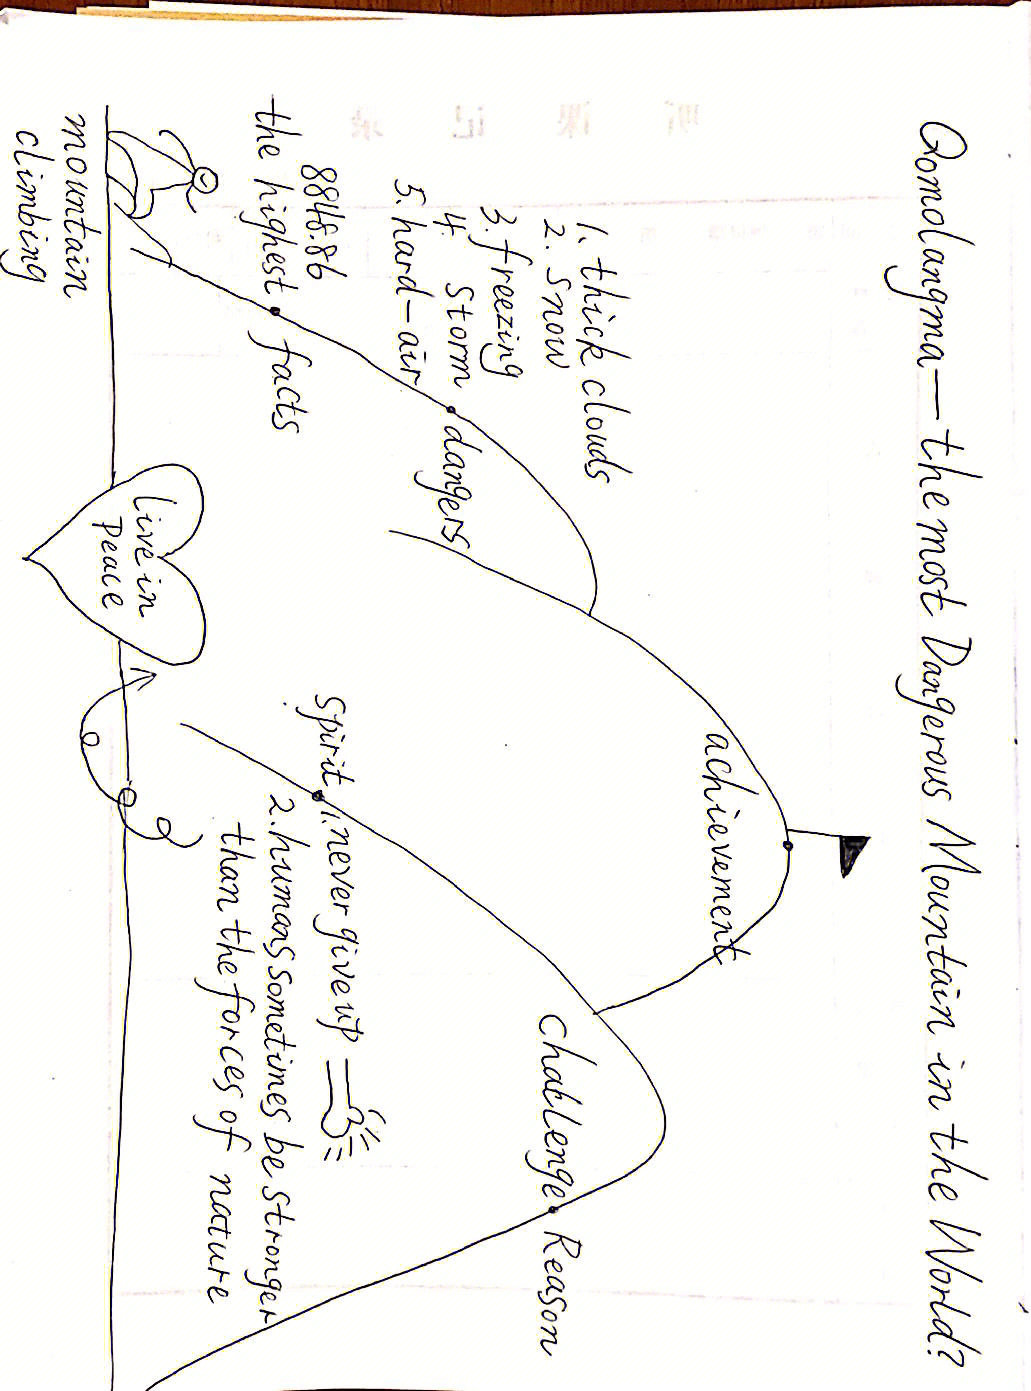 Qomolangma—the most Dangerous Mountain in the World?
1. thick clouds
2. snow
3. freezing
4. storm
5. hard-air
dangers
8848.86
the highest
facts
mountain
climbing
achievement
challenge
Reason
spirit
1. never give up
2. humans sometimes be stronger
than the forces of nature
Live in
Peace
听 课 记 录